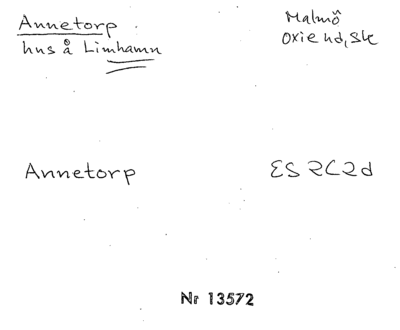 Annetorp
hus å Limhamn
Malmö
Oxie hd, Sk
Annetorp
ES 2C2d
Nr 13572